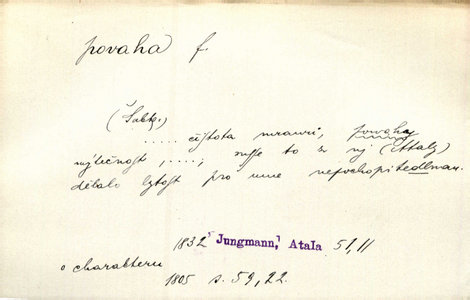 povaha f.
(Šubtg.)
..... čistota mravů, povahy
výtečnost, ....., vše to z nj (Ataly)
dělalo bytost pro mne nepochopitedlnau.
1832 Jungmann, Atala 51,11
o charakteru
1805 s. 59, 22.